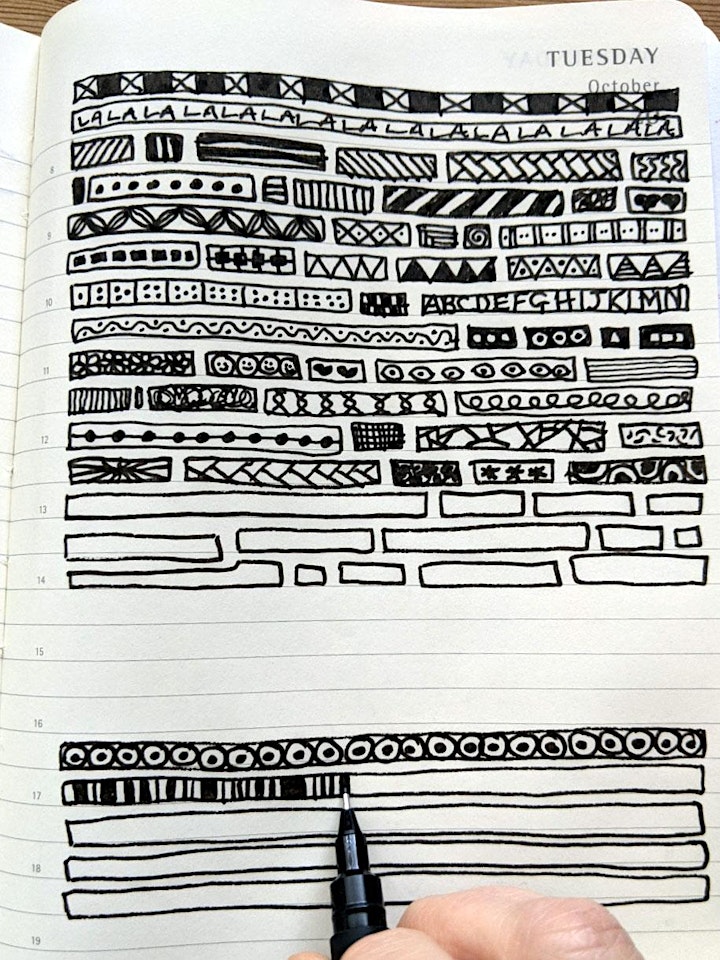 TUESDAY
October
LALALALALALALALALALALALALALA
8
9
10
ABCDEFGHIJKLMN
11
12
13
14
15
16
17
18
19